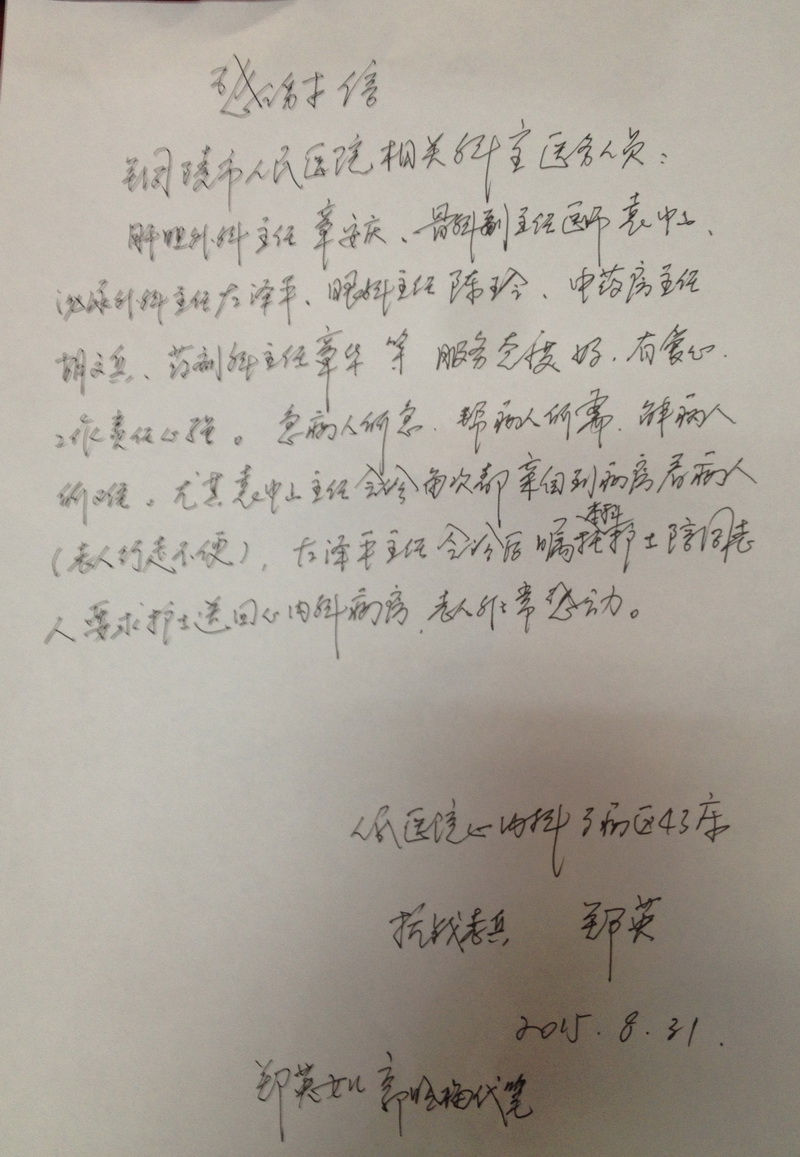 感谢信
铜陵市人民医院相关科室医务人员：
肝胆外科主任章安庆、骨科副主任医师袁中山、
泌尿外科主任左泽平、眼科主任陈玲、中药房主任
胡文兵、药剂科主任章华等服务态度好、有爱心、
工作责任心强。急病人所急、帮病人所需、解病人
所难。尤其袁中山主任会诊每次都亲自到病房看病人
（老人行走不便），左泽平主任会诊后嘱本科护士陪同老
人要求护士送回心内科病房，老人非常感动。
人民医院心内科3病区43床
抗战老兵 郑英
2015.8.31.
郑英女儿 代笔